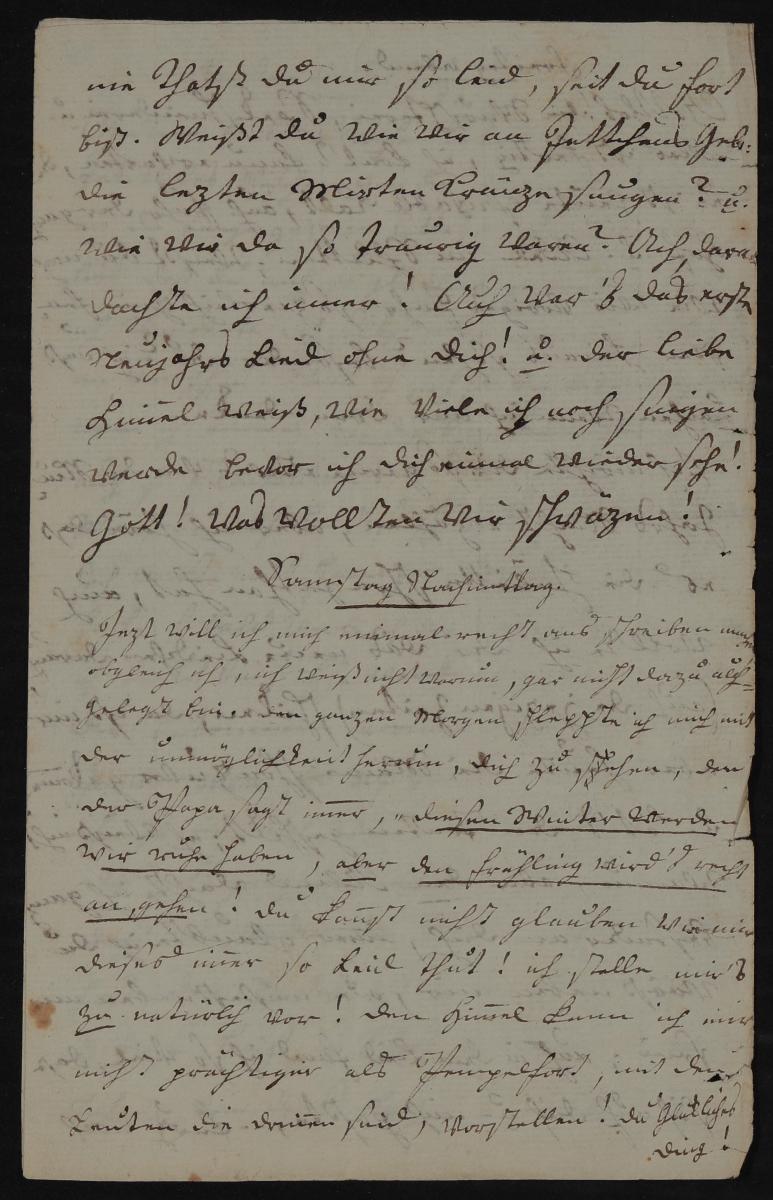 nie thatst du mir so leid, seit du fort
bist. Weißt du wie wir an Jettchens Geb:
die lezten Mirten Kränze sangen? u.
wie wir da so traurig waren? Ach, dara
dachte ich imer! Auch war's das erste
Neujahrs Lied ohne dich! u. der liebe
Himel weiß, wie viele ich noch singen
werde bevor ich dich einmal wieder sehe!
Gott! was wollten wir schwäzen!
Samstag Nachmittag.
Jezt will ich mich einmal recht aus schreiben
obgleich ich, ich weiß nicht warum, gar nicht dazu auf-
gelegt bin. den ganzen Morgen schleppte ich mich mit
der unmöglichkeit herum, dich zu sehen, den
der Papa sagt imer, „diesen Winter werden
wir ruhe haben, aber den frühling wird's recht
an gehen! du kanst nicht glauben wie mir
dieses imer so Leid thut! ich stelle mir's
zu natürlich vor! den Himel kann ich mir
nicht prächtiger als Pempelfort, mit den
Leuten die drinen sind, vorstellen! du Glükliches
Ding!